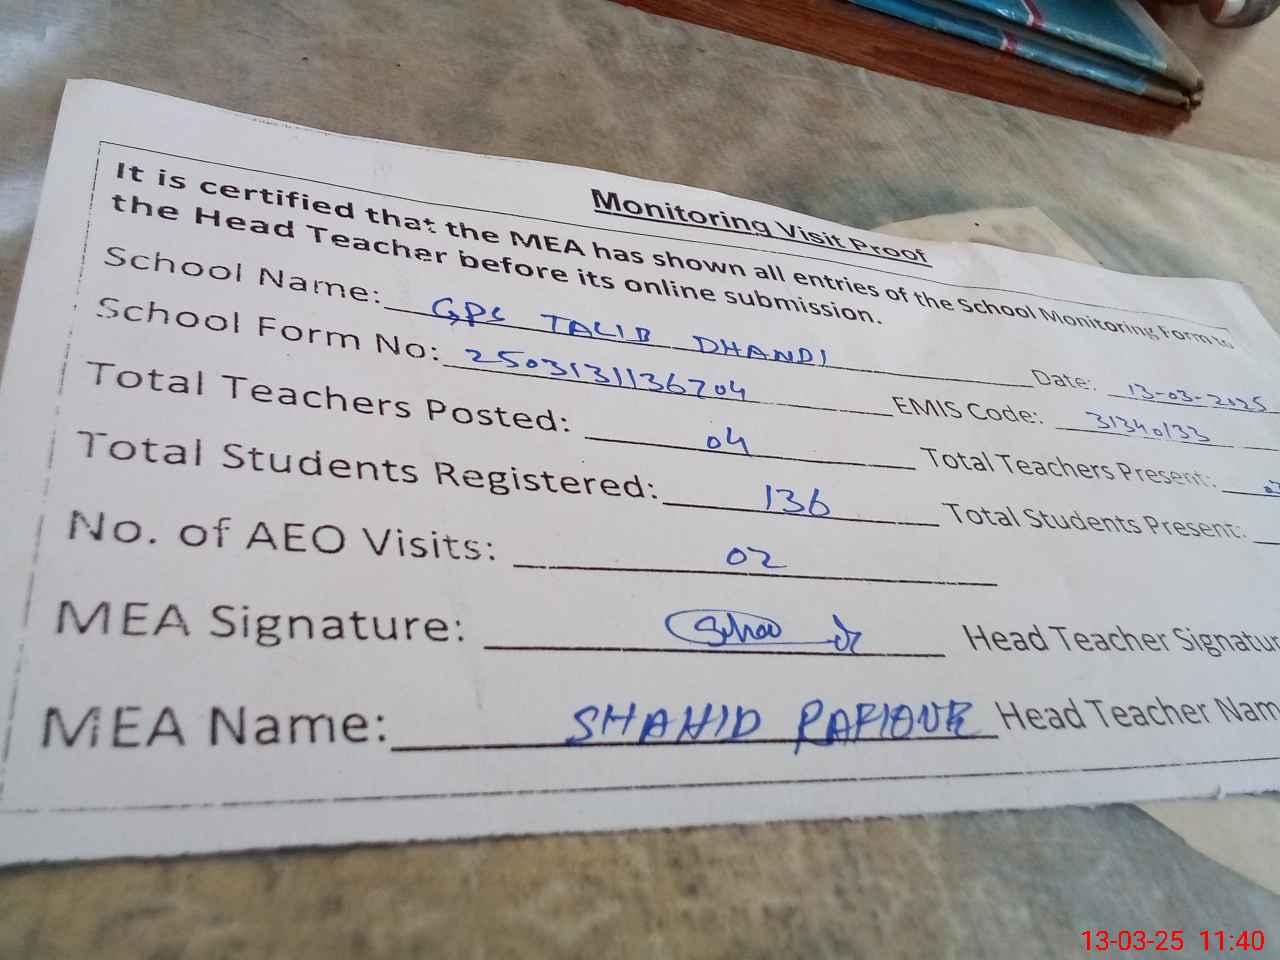 Monitoring Visit Proof
It is certified that the MEA has shown all entries of the School Monitoring Form to
the Head Teacher before its online submission.
School Name: GPC TALIB DHANDI Date: 13-03-2025
School Form No: 2503131136704 EMIS Code: 31340133
Total Teachers Posted: 04 Total Teachers Present:
Total Students Registered: 136 Total Students Present:
No. of AEO Visits: 02
MEA Signature: Head Teacher Signatur
MEA Name: SHAHID Head Teacher Nam
13-03-25 11:40